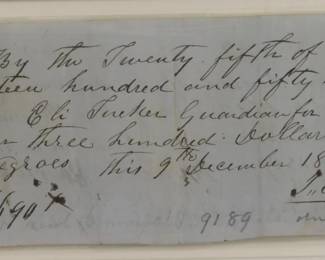 By the Twenty fifth of
teen hundred and fifty
Eli Tucker Guardian for
three hundred Dollar
egroes this 9th December 18
$90
9189